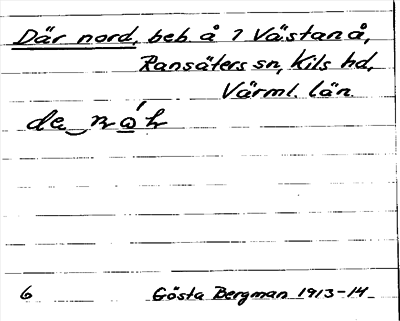 Där nord, beb å 1 Västanå,
Ransäters sn, Kils hd,
Värml. län.
6 Gösta Bergman 1913-14